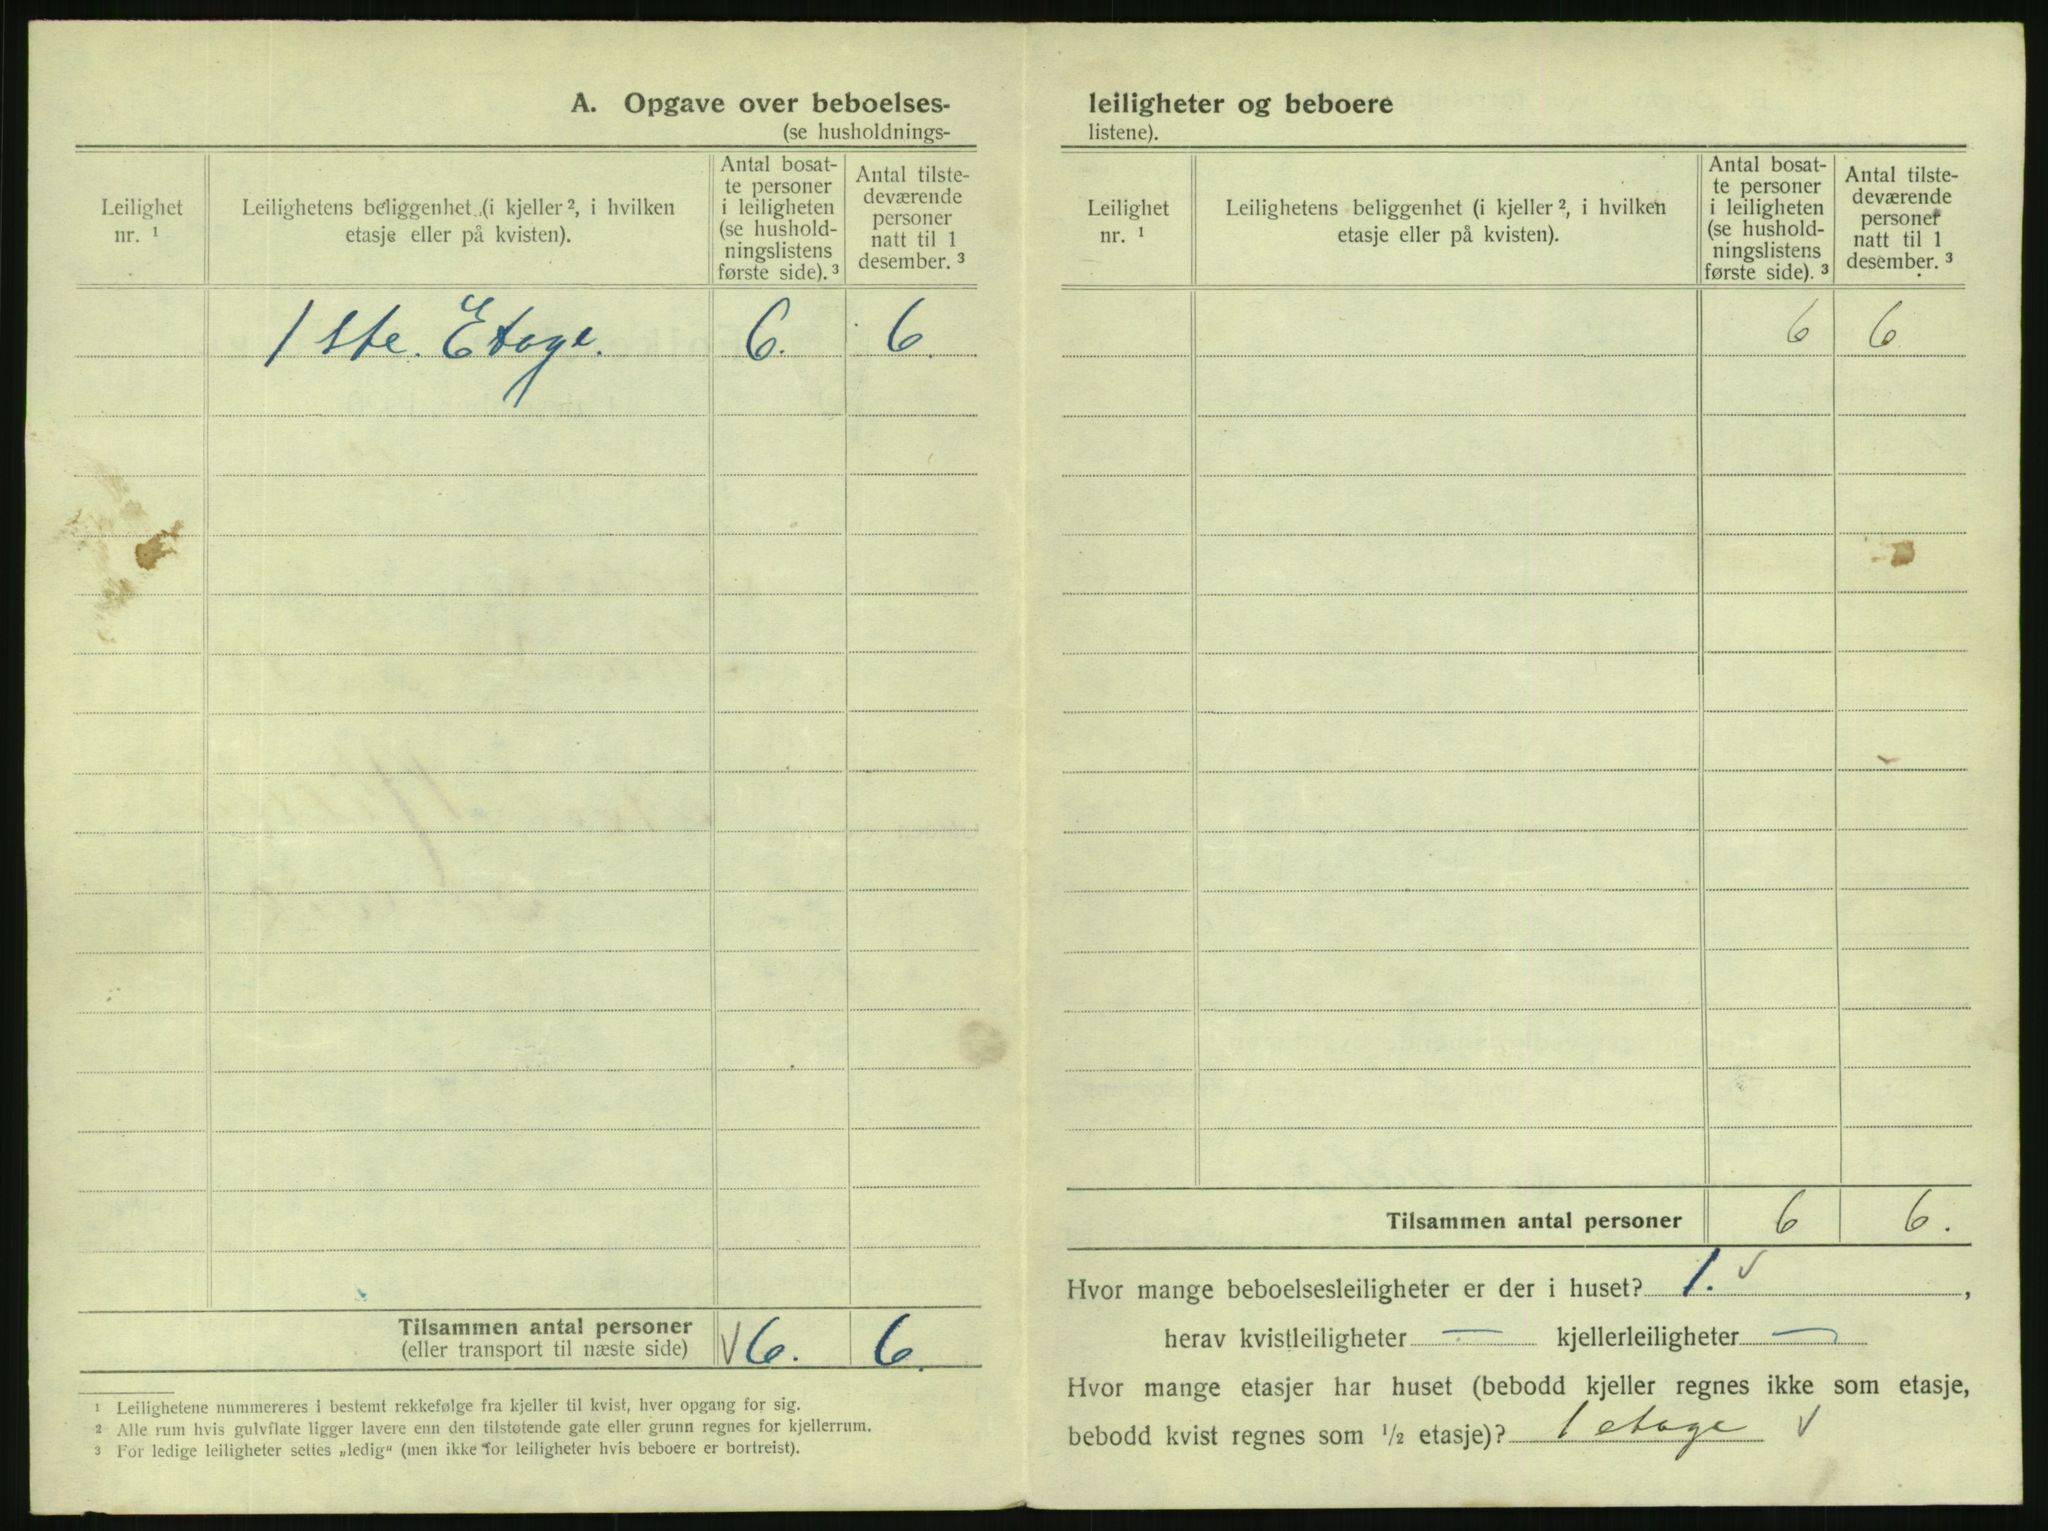 A. Opgave over beboelses-
(se husholdnings-
Leilighet
nr. ¹
Leilighetens beliggenhet (i kjeller ², i hvilken
etasje eller på kvisten).
Antal bosat-
te personer
i leiligheten
(se hushold-
ningslistens
første side). ³
Antal tilste-
deværende
personer
natt til 1
desember. ³
1 ste. Etage. 6. 6.
Tilsammen antal personer
(eller transport til næste side)
6. 6.
¹ Leilighetene nummereres i bestemt rekkefølge fra kjeller til kvist, hver opgang for sig.
² Alle rum hvis gulvflate ligger lavere enn den tilstøtende gate eller grunn regnes for kjellerrum.
³ For ledige leiligheter settes „ledig“ (men ikke for leiligheter hvis beboere er bortreist).
leiligheter og beboere
listene).
Leilighet
nr. ¹
Leilighetens beliggenhet (i kjeller ², i hvilken
etasje eller på kvisten).
Antal bosat-
te personer
i leiligheten
(se hushold-
ningslistens
første side). ³
Antal tilste-
deværende
personer
natt til 1
desember. ³
6 6
Tilsammen antal personer 6 6.
Hvor mange beboelsesleiligheter er der i huset? 1. ,
herav kvistleiligheter — kjellerleiligheter —
Hvor mange etasjer har huset (bebodd kjeller regnes ikke som etasje,
bebodd kvist regnes som ½ etasje)? 1 etage